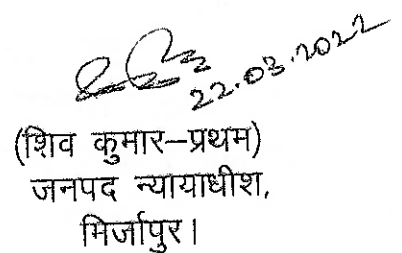 22.03.2022
(शिव कुमार–प्रथम)
जनपद न्यायाधीश,
मिर्जापुर।